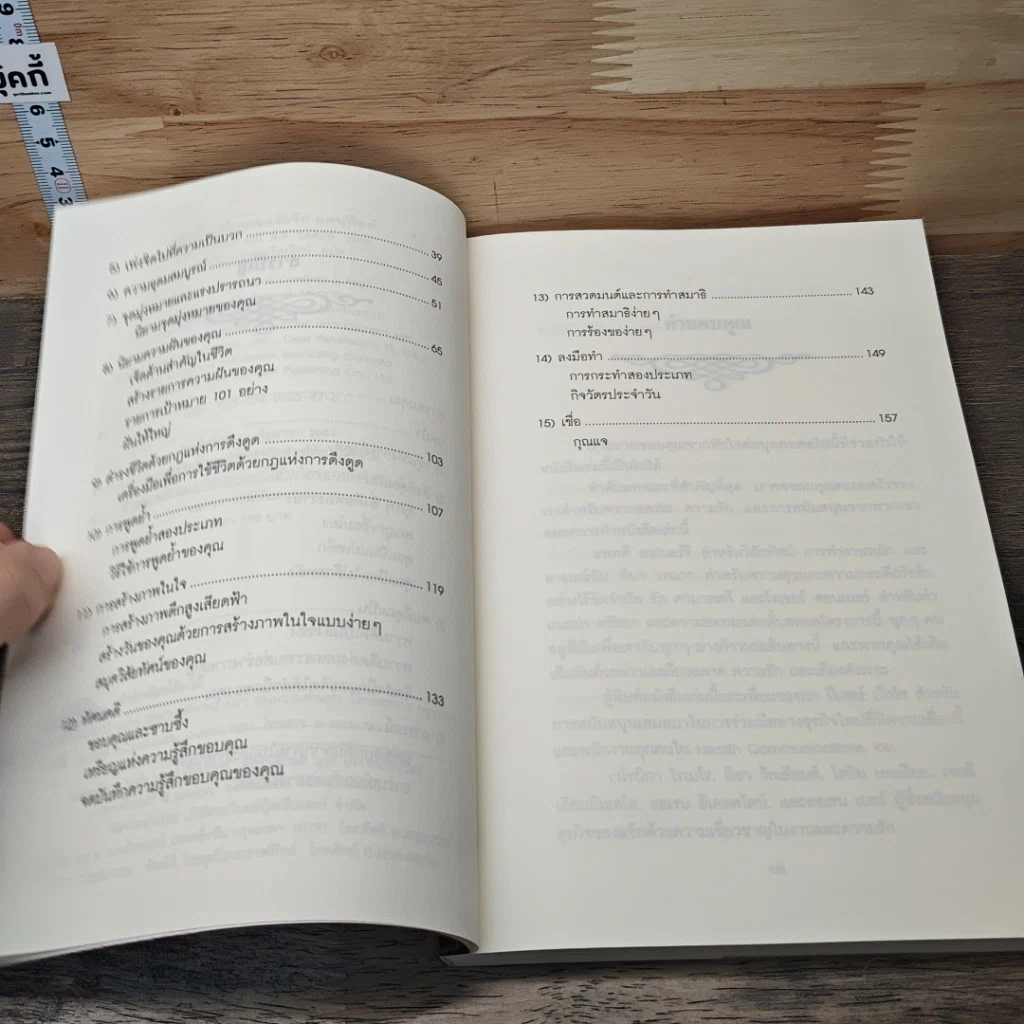 5) เพ่งจิตไปที่ความเป็นบวก 39
6) ความอุดมสมบูรณ์ 45
7) จุดมุ่งหมายและแรงปรารถนา 51
นิยามจุดมุ่งหมายของคุณ
8) นิยามความฝันของคุณ 65
เจ็ดด้านสำคัญในชีวิต
สร้างรายการความฝันของคุณ
รายการเป้าหมาย 101 อย่าง
ฝันให้ใหญ่
9) ดำรงชีวิตด้วยกฎแห่งการดึงดูด 103
เครื่องมือเพื่อการใช้ชีวิตด้วยกฎแห่งการดึงดูด
10) การพูดย้ำ 107
การพูดย้ำสองประเภท
วิธีใช้การพูดย้ำของคุณ
11) การสร้างภาพในใจ 119
การสร้างภาพตึกสูงเสียดฟ้า
สร้างวันของคุณด้วยการสร้างภาพในใจแบบง่ายๆ
สมุดวิสัยทัศน์ของคุณ
12) ทัศนคติ 133
ขอบคุณและซาบซึ้ง
เหรียญแห่งความรู้สึกขอบคุณ
จดบันทึกความรู้สึกขอบคุณของคุณ
13) การสวดมนต์และการทำสมาธิ 143
การทำสมาธิง่ายๆ
การร้องของ่ายๆ
14) ลงมือทำ 149
การกระทำสองประเภท
กิจวัตรประจำวัน
15) เชื่อ 157
กุญแจ